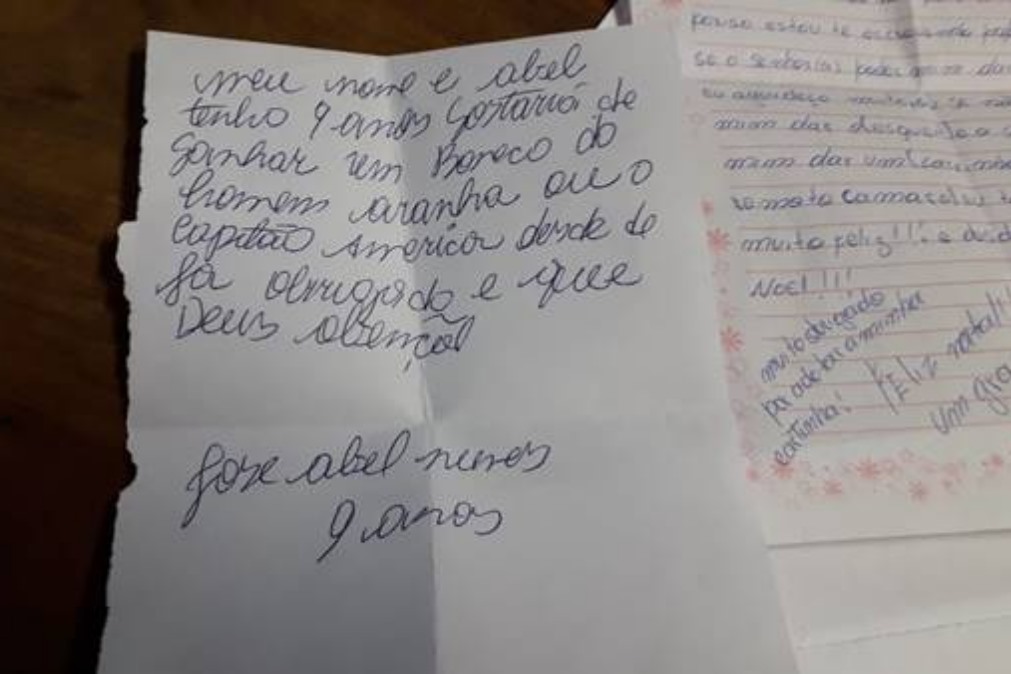 meu nome e abel
tenho 9 anos gostaria de
ganhar um Boneco do
homem aranha ou o
Capitão America desde de
ja obrigado e que
Deus abençoi
jose abel nunes
9 anos
estou te escrevendo
se o senhor(a) poder mim dar
eu agradeço
mim dar
mim dar um carrinho
remoto
muito feliz!!!
Noel!!!
muito obrigado
por adotar a minha
cartinha!
Feliz natal!!
Um